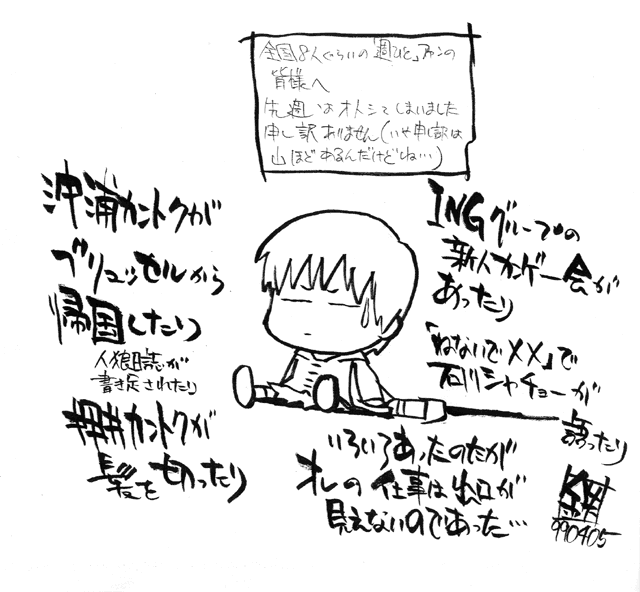 全国8人ぐらいの「週ひと」ファンの
皆様へ
先週はオトシてしまいました
申し訳ありません(いや申し訳は
山ほどあるんだけどね…)
沖浦カントクが
ブリュッセルから
帰国したり
人狼日誌が
書き足されたり
押井カントクが
髪を切ったり
INGグループの
新人カンゲー会が
あったり
「ねないで××」で
石川シャチョーが
語ったり
いろいろあったのだが
オレの仕事は出口が
見えないのであった…
990405